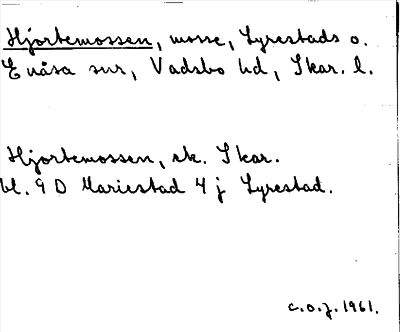 Hjortemossen, mosse, Lyrestads o.
Enåsa snr, Vadsbo hd, Skar. l.
Hjortemossen, ek. Skar.
bl. 9 D Mariestad 4 j Lyrestad.
c.o.j. 1961.